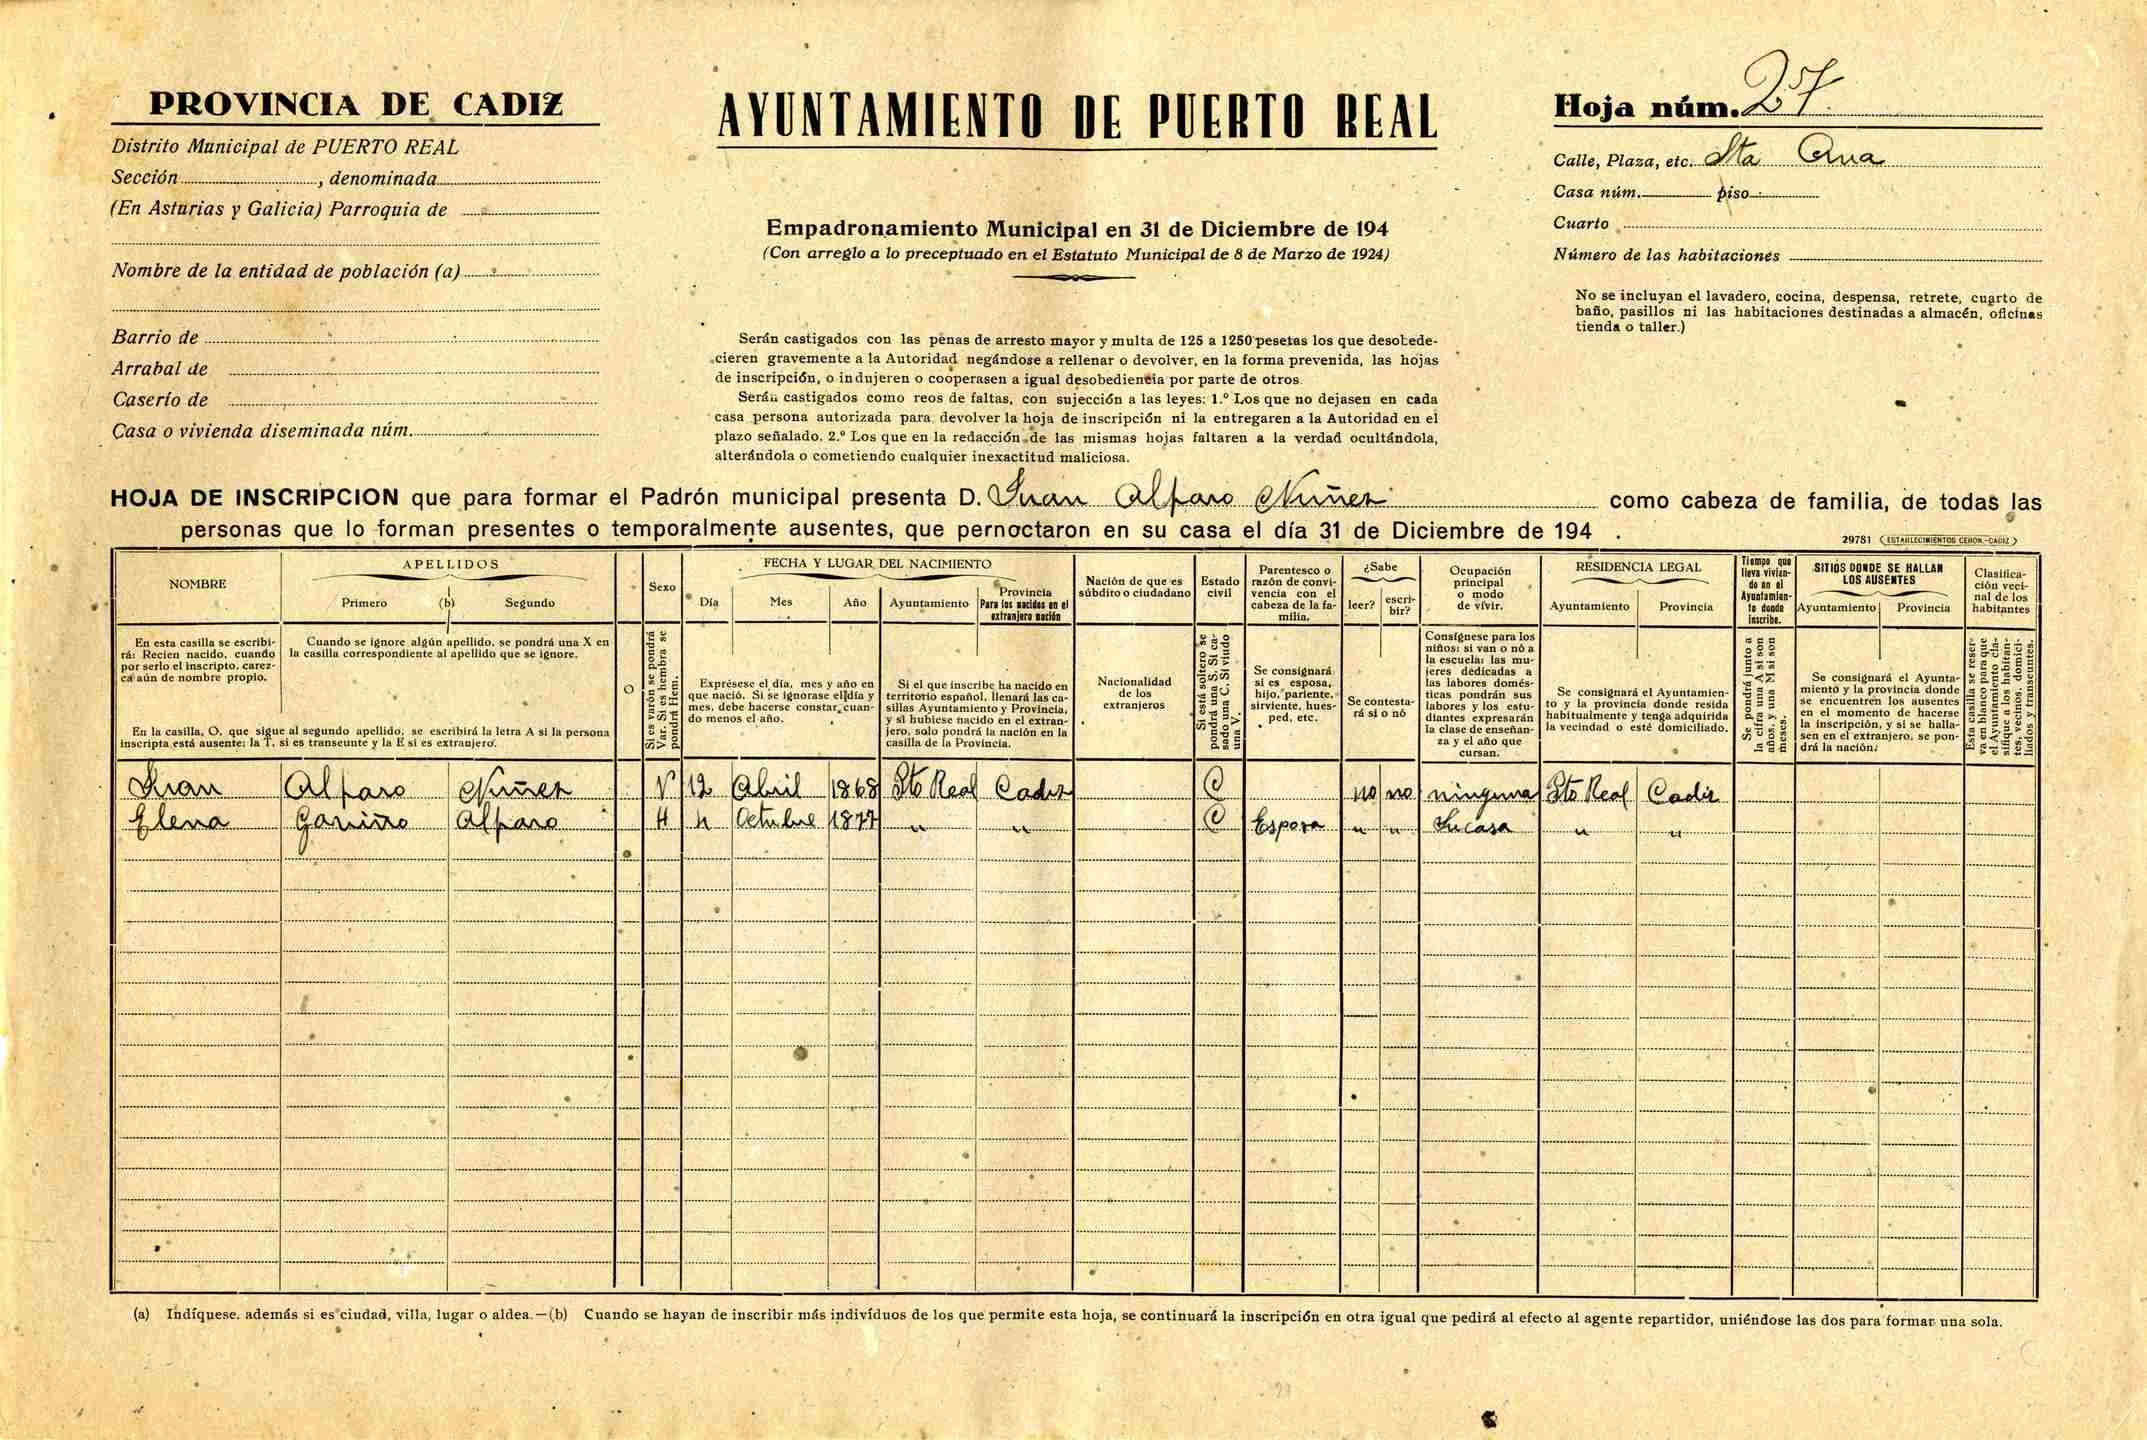 PROVINCIA DE CADIZ
Distrito Municipal de PUERTO REAL
Sección , denominada
(En Asturias y Galicia) Parroquia de
Nombre de la entidad de población (a)
Barrio de
Arrabal de
Caserío de
Casa o vivienda diseminada núm.
AYUNTAMIENTO DE PUERTO REAL
Empadronamiento Municipal en 31 de Diciembre de 194
(Con arreglo a lo preceptuado en el Estatuto Municipal de 8 de Marzo de 1924)
Serán castigados con las penas de arresto mayor y multa de 125 a 1250 pesetas los que desobede-
cieren gravemente a la Autoridad negándose a rellenar o devolver, en la forma prevenida, las hojas
de inscripción, o indujeren o cooperasen a igual desobediencia por parte de otros.
Serán castigados como reos de faltas, con sujección a las leyes: 1.º Los que no dejasen en cada
casa persona autorizada para devolver la hoja de inscripción ni la entregaren a la Autoridad en el
plazo señalado. 2.º Los que en la redacción de las mismas hojas faltaren a la verdad ocultándola,
alterándola o cometiendo cualquier inexactitud maliciosa.
Hoja núm. 27
Calle, Plaza, etc. Sta Ana
Casa núm. piso
Cuarto
Número de las habitaciones
No se incluyan el lavadero, cocina, despensa, retrete, cuarto de
baño, pasillos ni las habitaciones destinadas a almacén, oficinas
tienda o taller.)
HOJA DE INSCRIPCION que para formar el Padrón municipal presenta D. Juan Alfaro Nuñez como cabeza de familia, de todas las
personas que lo forman presentes o temporalmente ausentes, que pernoctaron en su casa el día 31 de Diciembre de 194 .
29781 (ESTABLECIMIENTOS CERON.-CADIZ)
NOMBRE
APELLIDOS
Primero (b) Segundo
O
Sexo
FECHA Y LUGAR DEL NACIMIENTO
Día Mes Año Ayuntamiento
Provincia
Para los nacidos en el
extranjero nación
Nación de que es
súbdito o ciudadano
Estado
civil
Parentesco o
razón de convi-
vencia con el
cabeza de la fa-
milia.
¿Sabe
leer? escri-
bir?
Ocupación
principal
o modo
de vivir.
RESIDENCIA LEGAL
Ayuntamiento Provincia
Tiempo que
lleva vivien-
do en el
Ayuntamien-
to donde
inscribe.
SITIOS DONDE SE HALLAN
LOS AUSENTES
Ayuntamiento Provincia
Clasifica-
ción veci-
nal de los
habitantes
En esta casilla se escribi-
rá: Recien nacido, cuando
por serlo el inscripto, carez-
ca aún de nombre propio.
Cuando se ignore algún apellido, se pondrá una X en
la casilla correspondiente al apellido que se ignore.
En la casilla, O, que sigue al segundo apellido, se escribirá la letra A si la persona
inscripta está ausente; la T, si es transeunte y la E si es extranjero.
Si es varón se pondrá
Var. Si es hembra se
pondrá Hem.
Exprésese el día, mes y año en
que nació. Si se ignorase el día y
mes, debe hacerse constar cuan-
do menos el año.
Si el que inscribe ha nacido en
territorio español, llenará las ca-
sillas Ayuntamiento y Provincia,
y si hubiese nacido en el extran-
jero, solo pondrá la nación en la
casilla de la Provincia.
Nacionalidad
de los
extranjeros
Si está soltero se
pondrá una S. Si ca-
sado una C. Si viudo
una V.
Se consignará
si es esposa,
hijo, pariente,
sirviente, hues-
ped, etc.
Se contesta-
rá si o nó
Consígnese para los
niños: si van o nó a
la escuela: las mu-
jeres dedicadas a
las labores domés-
ticas pondrán sus
labores y los estu-
diantes expresarán
la clase de enseñan-
za y el año que
cursan.
Se consignará el Ayuntamien-
to y la provincia donde resida
habitualmente y tenga adquirida
la vecindad o esté domiciliado.
Se pondrá junto a
la cifra una A si son
años, y una M si son
meses.
Se consignará el Ayunta-
miento y la provincia donde
se encuentren los ausentes
en el momento de hacerse
la inscripción, y si se halla-
sen en el extranjero, se pon-
drá la nación.
Esta casilla se reser-
va en blanco para que
el Ayuntamiento cla-
sifique a los habitan-
tes, vecinos, domici-
liados y transeuntes.
Juan Alfaro Nuñez V 12 Abril 1868 Pto Real Cadiz C no no ninguna Pto Real Cadiz
Elena Alfaro H 4 Octubre 1877 " " C Esposa " " Su casa " "
(a) Indíquese, además si es ciudad, villa, lugar o aldea.—(b) Cuando se hayan de inscribir más individuos de los que permite esta hoja, se continuará la inscripción en otra igual que pedirá al efecto al agente repartidor, uniéndose las dos para formar una sola.